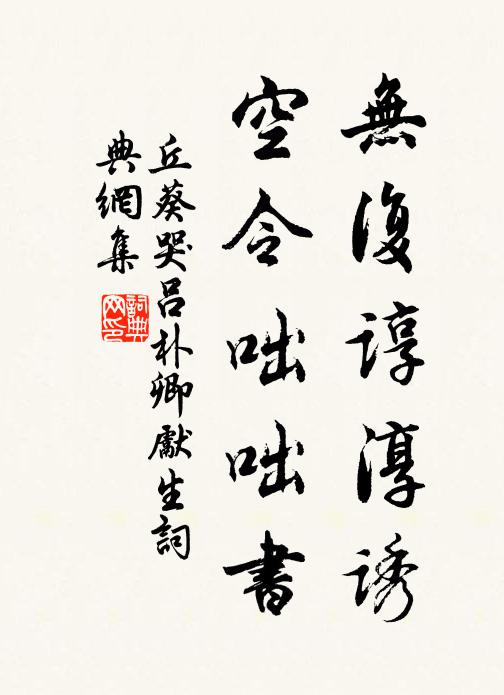 無復諄淳誘
空令咄咄書
丘葵哭呂朴卿獻生詞
典網集
詞典
网印